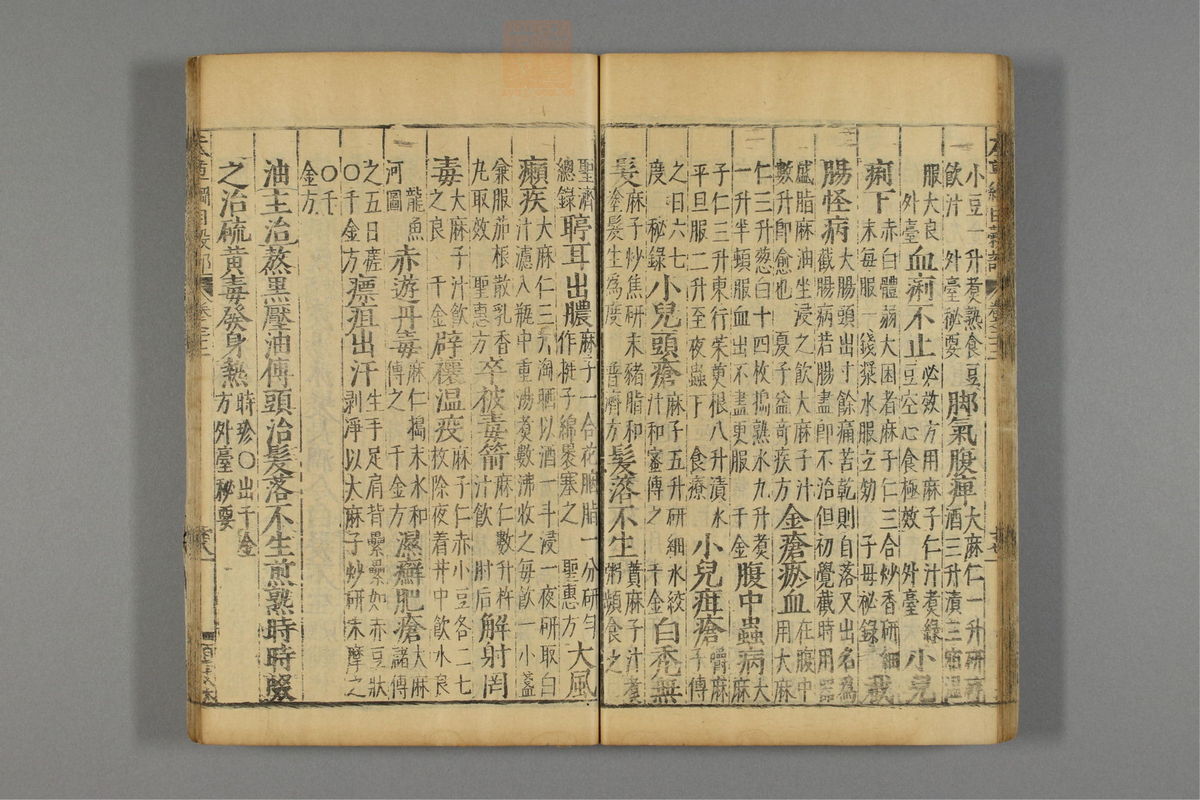 小豆一升煮熟食豆
飲汁 外臺秘要
脚氣腹痺
大麻仁一升研碎
酒三升漬三宿温
服大良
外臺
血痢不止
必效方用麻子仁汁煮綠
豆空心食極效 外臺
小兒
痢下
赤白體弱大困者麻子仁三合炒香研細
末每服一錢漿水服立効 子母秘錄
截
腸怪病
大腸頭出寸餘痛苦乾則自落又出名爲
截腸病若腸盡即不治但初覺截時用器
盛脂麻油坐浸之飲大麻子汁
數升即愈也 夏子益奇疾方
金瘡瘀血
在腹中
用大麻
仁三升葱白十四枚搗熟水九升煑
一升半頓服血出不盡更服 千金
腹中蟲病
大
麻
子仁三升東行茱萸根八升漬水
平旦服二升至夜蟲下 食療
小兒疳瘡
嚼麻
子傅
之日六七
度 秘錄
小兒頭瘡
麻子五升研細水絞
汁和蜜傅之 千金
白禿無
髮
麻子炒焦研末豬脂和
塗髮生爲度 普濟方
髮落不生
蕡麻子汁煮
粥頻食之
聖濟
總錄
聤耳出膿
麻子一合花胭脂一分研勻
作梃子綿裹塞之 聖惠方
大風
癩疾
大麻仁三升淘晒以酒一斗浸一夜研取白
汁濾入瓶中重湯煑數沸收之每飲一小盞
兼服茄根散乳香
丸取效 聖惠方
卒被毒箭
麻仁數升杵
汁飲 肘后
解射罔
毒
大麻子汁飲
之良 千金
辟禳温疫
麻子仁赤小豆各二七
枚除夜着井中飲水良
龍魚
河圖
赤遊丹毒
麻仁搗末水和
傅之 千金方
濕癬肥瘡
大麻
諸傅
之五日瘥
○千金方
瘭疽出汗
生手足肩背纍纍如赤豆狀
剥淨以大麻子炒研末摩之
○千
金方
油主治熬黑壓油傅頭治髮落不生煎熟時時啜
之治硫黄毒發身熱
時珍○出千金
方外臺秘要